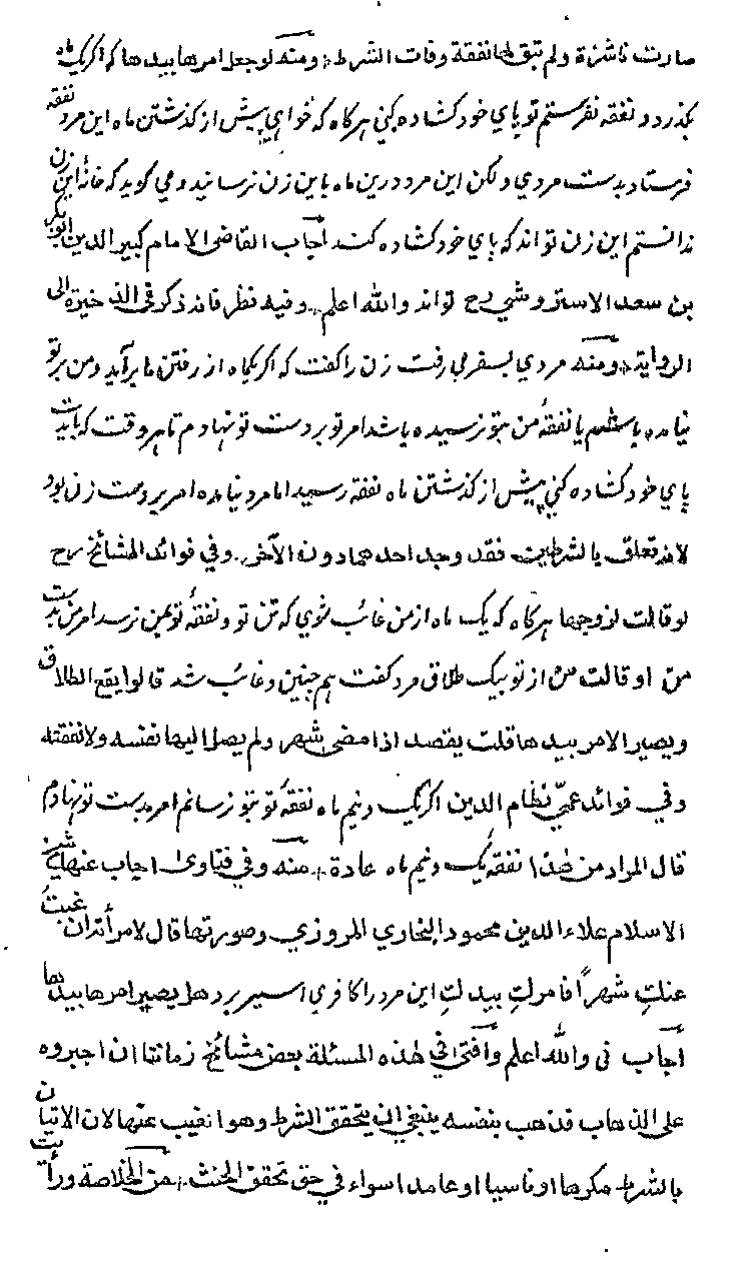 صارت ناشزة ولم تبق لها نفقة وفات الشرط ومنه لو جعل امرها بيدها كه اگر يك ماه
بگذرد و نفقه نفرستم تو پاي خود كشاده كني هر كاه كه خواهي پيش از كذشتن ماه اين مرد نفقه
فرستاد بدست مردي ولكن اين مرد درين ماه باين زن نرسانيد و مي گويد كه خانهٔ اين زن
ندانستم اين زن تواند كه پاي خود كشاده كند اجاب القاضى الامام كبير الدين ابو بكر
بن سعد الاستروشني رح تواند والله اعلم وفيه نظر فانه ذكر في الذخيرة الى
الرواية ومنه مردي بسفر مي رفت زن را كفت كه اكر يكماه از رفتن ما برآيد ومن بر تو
نيامده باشم يا نفقهٔ من بتو نرسيده باشد امر تو بردست تو نهادم تا هر وقت كه بايدت
پاي خود كشاده كني پيش از كذشتن ماه نفقه رسيد اما مرد نيامده امر بردست زن بود
لانه تعلق بالشرطين فقد وجد احدهما دون الآخر وفي فوائد المشائخ رح
لو قالت لزوجها هر كاه كه يك ماه از من غائب شوي كه تن تو و نفقهٔ تو بمن نرسد امر من بدست
من او قالت من از تو بيك طلاق مرد كفت هم چنين وغائب شد قالوا يقع الطلاق
ويصير الامر بيدها قلت يقصد اذا مضى شهر ولم يصل اليها نفسه ولا نفقته
وفي فوائد عمي نظام الدين اكر يك ونيم ماه نفقهٔ تو بتو نرسانم امر بدست تو نهادم
قال المراد من هذا نفقه يك ونيم ماه عادة منه وفي فتاوى اجاب عنها شيخ
الاسلام علاء الدين محمود البخاري المروزي وصورتها قال لامرأته ان غبت
عنك شهرا فامرك بيدك اين مرد را كافري اسير برد هل يصير امرها بيدها
اجاب ني والله اعلم وافتى في هذه المسئلة بعض مشائخ زماننا ان اجبروه
على الذهاب فذهب بنفسه ينبغي ان يتحقق الشرط وهو انغيب عنها لان الاتيان
بالشرط مكرها او ناسيا او عامدا سواء في حق تحقق الحنث من الخلاصة ورأيت